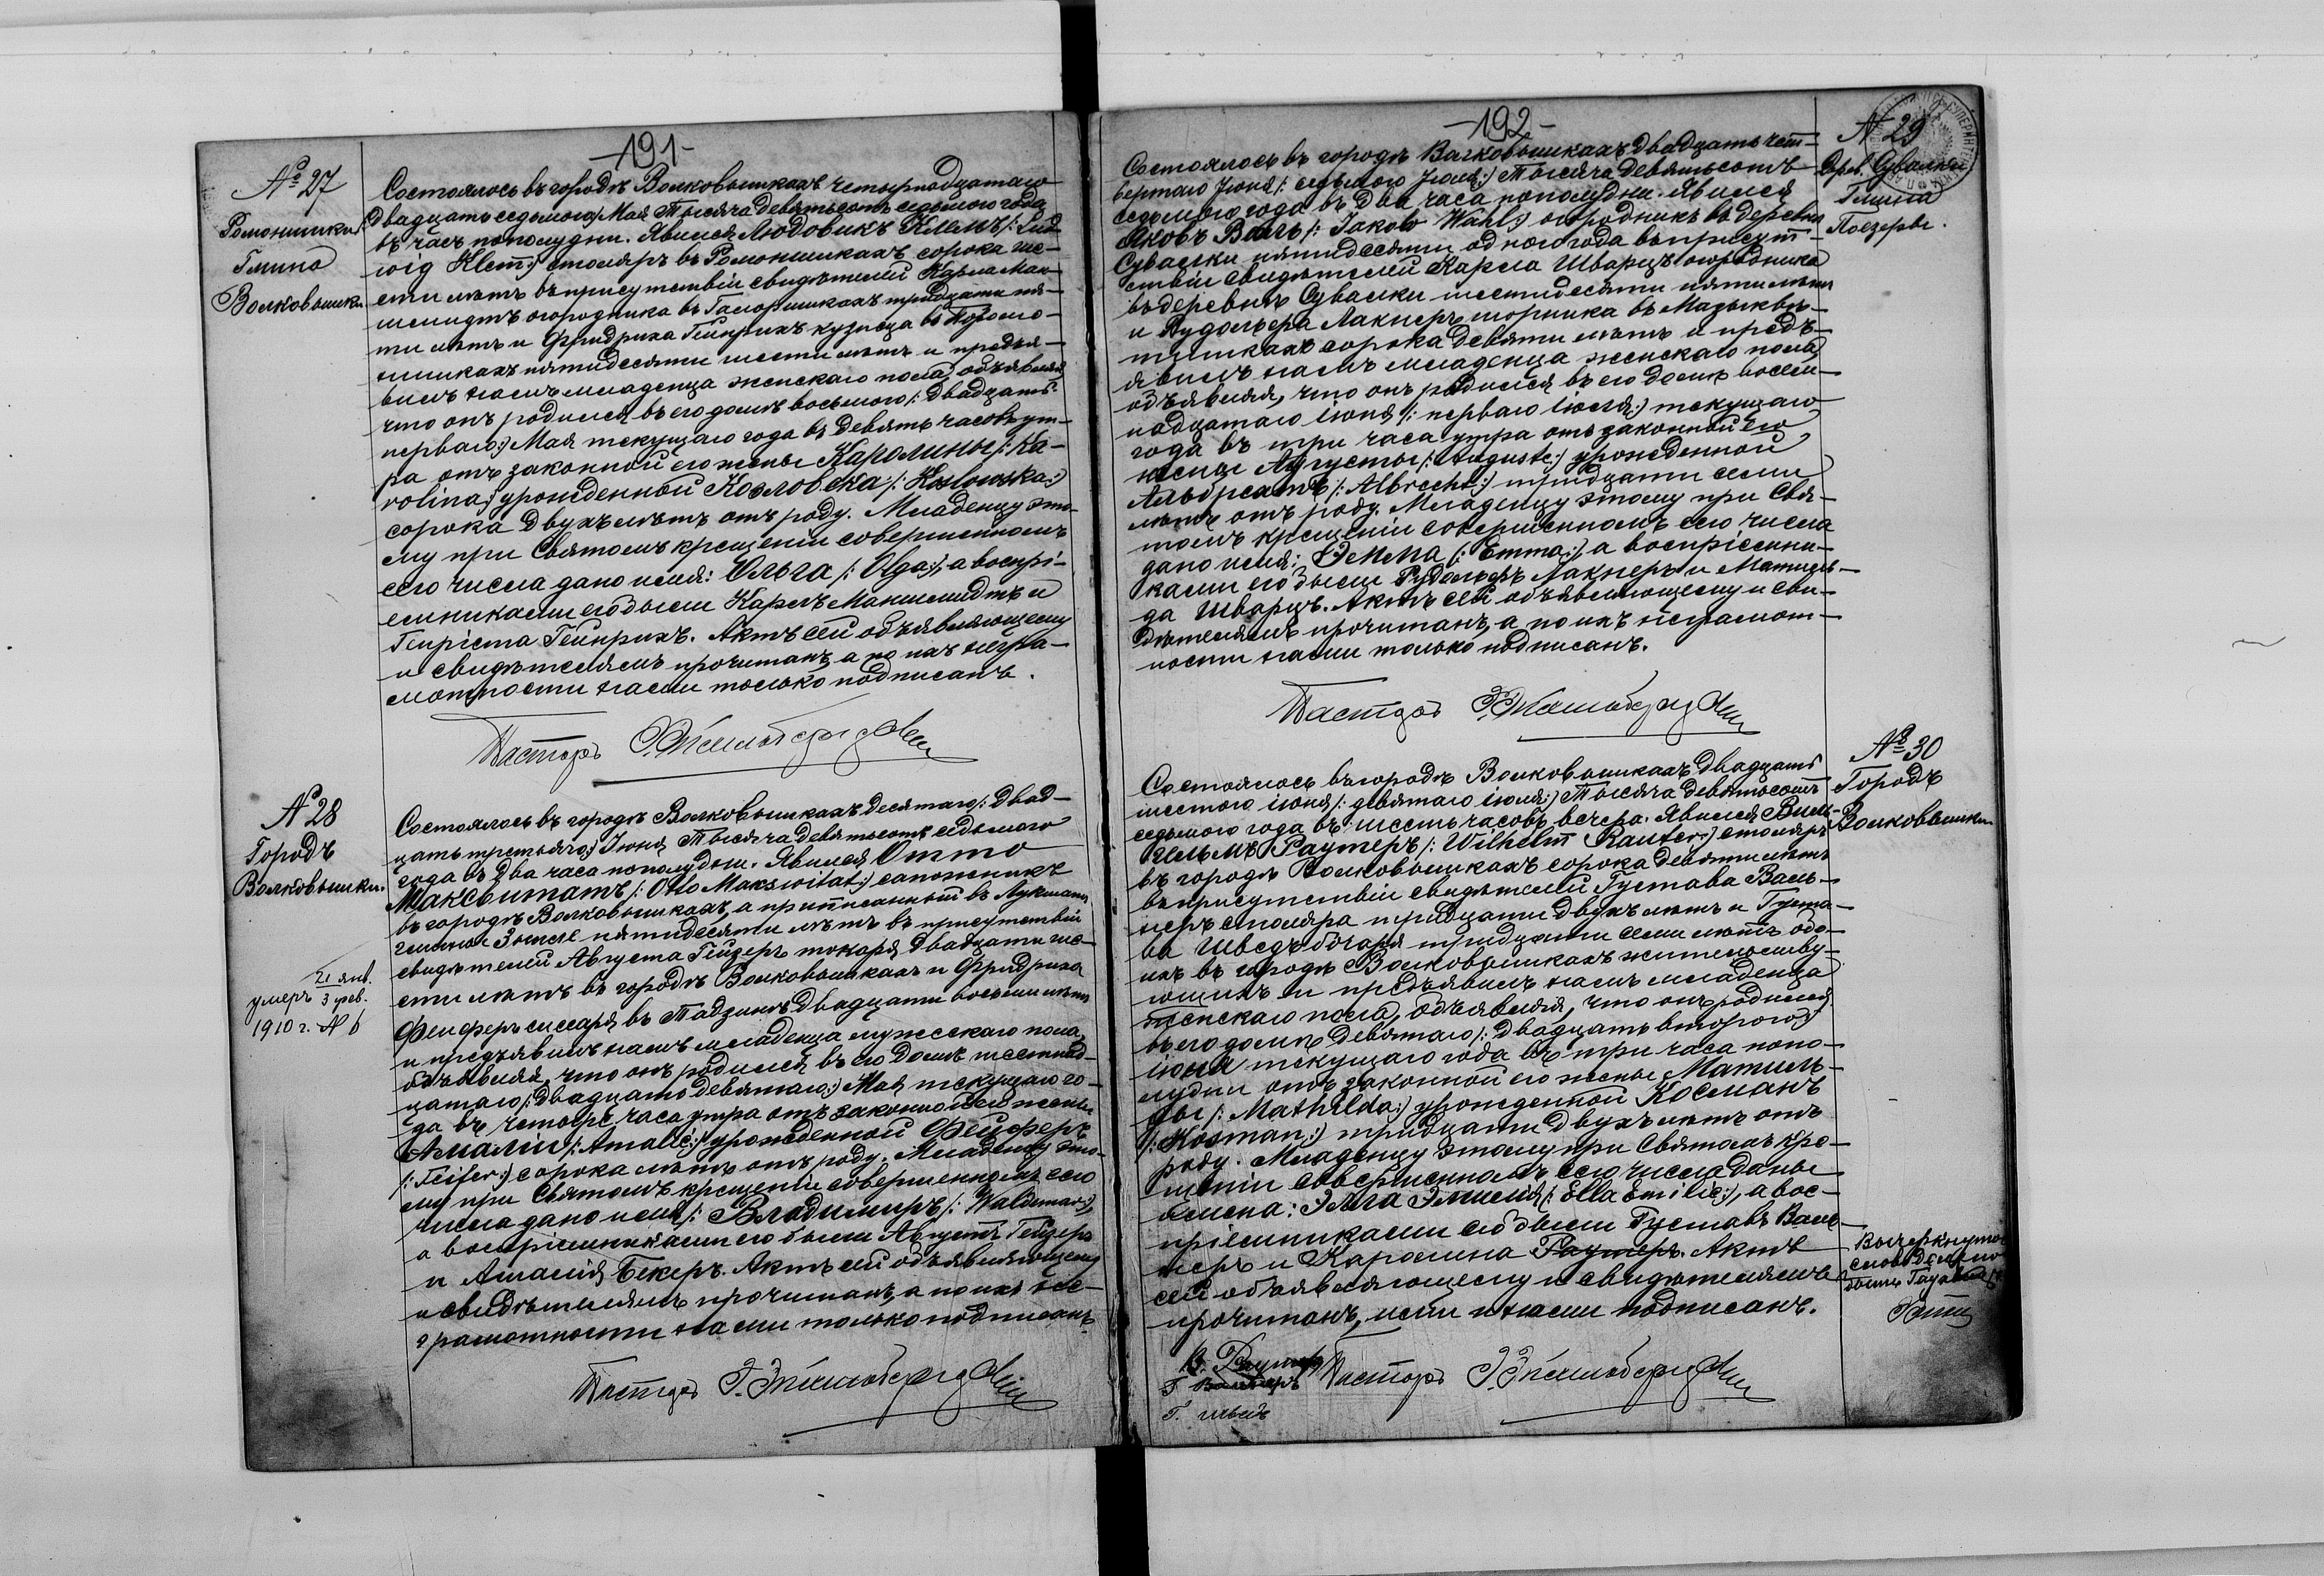 -191-
№ 27
Ромонишки
Гмина
Волковышки
Состоялось въ городѣ Волковышкахъ четырнадцатаго
/:Двадцать седьмого:/ Мая Тысяча девятьсотъ седьмого года
въ часъ пополудни. Явился Людовикъ Клемъ /: Lud-
wig Klem:/ столяръ въ Ромонишкахъ сорока ше-
сти лѣтъ въ присутствіи свидѣтелей Карла Ман-
шмидтъ огородника въ тридцати пя-
ти лѣтъ и Фридриха Гейнрихъ кузнеца въ
пятидесяти шести лѣтъ и предъя-
вилъ намъ младенца женскаго пола, объявляя
что онъ родился въ его домѣ восьмого /: двадцать
перваго:/ Мая текущаго года въ девять часовъ ут-
ра отъ законной его жены Каролины /: Ka-
rolina:/ урожденной Козловска /: Koslowska:/
сорока двухъ лѣтъ отъ роду. Младенцу это-
му при Святомъ крещеніи совершенномъ
сего числа дано имя: Ольга /: Olga:/, а воспрі-
емниками его были Карлъ Маншмидтъ и
Гейнрихъ. Актъ сей объявляющему
и свидѣтелямъ прочитанъ, а по ихъ негра-
мотности нами только подписанъ.
Пасторъ
№ 28
Городъ
Волковышки.
умеръ 21 янв.
3 фев.
1910 г. № 6
Состоялось въ городѣ Волковышкахъ десятаго /: Двад-
цать третьяго:/ Іюня Тысяча девятьсотъ седьмого
года въ два часа пополудни. Явился Отто
Максвитатъ /: Otto Makswitat:/ сапожникъ
въ городѣ Волковышкахъ, а приписанный въ
гминѣ пятидесяти лѣтъ въ присутствіи
свидѣтелей Августа Гейзеръ токаря двадцати ше-
сти лѣтъ въ городѣ Волковышкахъ и Фридриха
Фейферъ слесаря въ двадцати восьми лѣтъ
и предъявилъ намъ младенца мужескаго пола,
объявляя, что онъ родился въ его домѣ шестнад-
цатаго /: двадцать девятаго:/ Мая текущаго го-
да въ четыре часа утра отъ законной его жены
Амаліи /: Amalie:/ урожденной Фейферъ
/: Feifer:/ сорока лѣтъ отъ роду. Младенцу это-
му при Святомъ крещеніи совершенномъ сего
числа дано имя /: Владимиръ /: Waldemar:/,
а воспріемниками его были Августъ Гейзеръ
и Амалія Бекеръ. Актъ сей объявляющему
и свидѣтелямъ прочитанъ, а по ихъ не-
грамотности нами только подписанъ.
Пасторъ
-192-
№ 29
Дер. Сувалки
Гмина
Поезеры.
Состоялось въ городѣ Волковышкахъ двадцать чет-
вертаго Іюня /: седьмого Іюля:/ Тысяча девятьсотъ
седьмого года въ два часа пополудни. Явился
Яковъ Валь /: Jakob Wahl:/ огородникъ въ деревнѣ
Сувалки пятидесяти одного года въ присут-
ствіи свидѣтелей Карла Шварцъ огородника
въ деревнѣ Сувалки шестидесяти пяти лѣтъ
и Рудольфа Лакнеръ въ
сорока девяти лѣтъ и предъ-
явилъ намъ младенца женскаго пола,
объявляя, что онъ родился въ его домѣ восем-
надцатаго іюня /: перваго іюля:/ текущаго
года въ три часа утра отъ законной его
жены Августы /: Auguste:/ урожденной
Альбрехтъ /: Albrecht:/ тридцати семи
лѣтъ отъ роду. Младенцу этому при Свя-
томъ крещеніи совершенномъ сего числа
дано имя: Эмма /: Emma:/, а воспріемни-
ками его были Рудольфъ Лакнеръ и Матиль-
да Шварцъ. Актъ сей объявляющему и сви-
дѣтелямъ прочитанъ, а по ихъ неграмот-
ности нами только подписанъ.
Пасторъ
№ 30
Городъ
Волковышки
Состоялось въ городѣ Волковышкахъ двадцать
шестого іюня /: девятаго іюля:/ Тысяча девятьсотъ
седьмого года въ шесть часовъ вечера. Явился Виль-
гельмъ Раутеръ /: Wilhelm Rauter:/ столяръ
въ городѣ Волковышкахъ сорока девяти лѣтъ
въ присутствіи свидѣтелей Густава Валь-
теръ столяра тридцати двухъ лѣтъ и Густа-
ва Шведъ бочаря тридцати семи лѣтъ обо-
ихъ въ городѣ Волковышкахъ жительству-
ющихъ и предъявилъ намъ младенца
женскаго пола, объявляя, что онъ родился
въ его домѣ девятаго /: двадцать второго:/
іюня текущаго года въ три часа попо-
лудни отъ законной его жены Матиль-
ды /: Mathilda:/ урожденной Косманъ
/: Kosman:/ тридцати двухъ лѣтъ отъ
роду. Младенцу этому при Святомъ кре-
щеніи совершенномъ сего числа даны
имена: Элла Эмилія /: Ella Emilie:/, а вос-
пріемниками его были Густавъ Валь-
теръ и Каролина Раутеръ. Актъ
сей объявляющему и свидѣтелямъ
прочитанъ, ими и нами подписанъ.
Вычеркнуто
слово
В. Раутеръ
Г. Вальтеръ
Г. Шведъ
Пасторъ